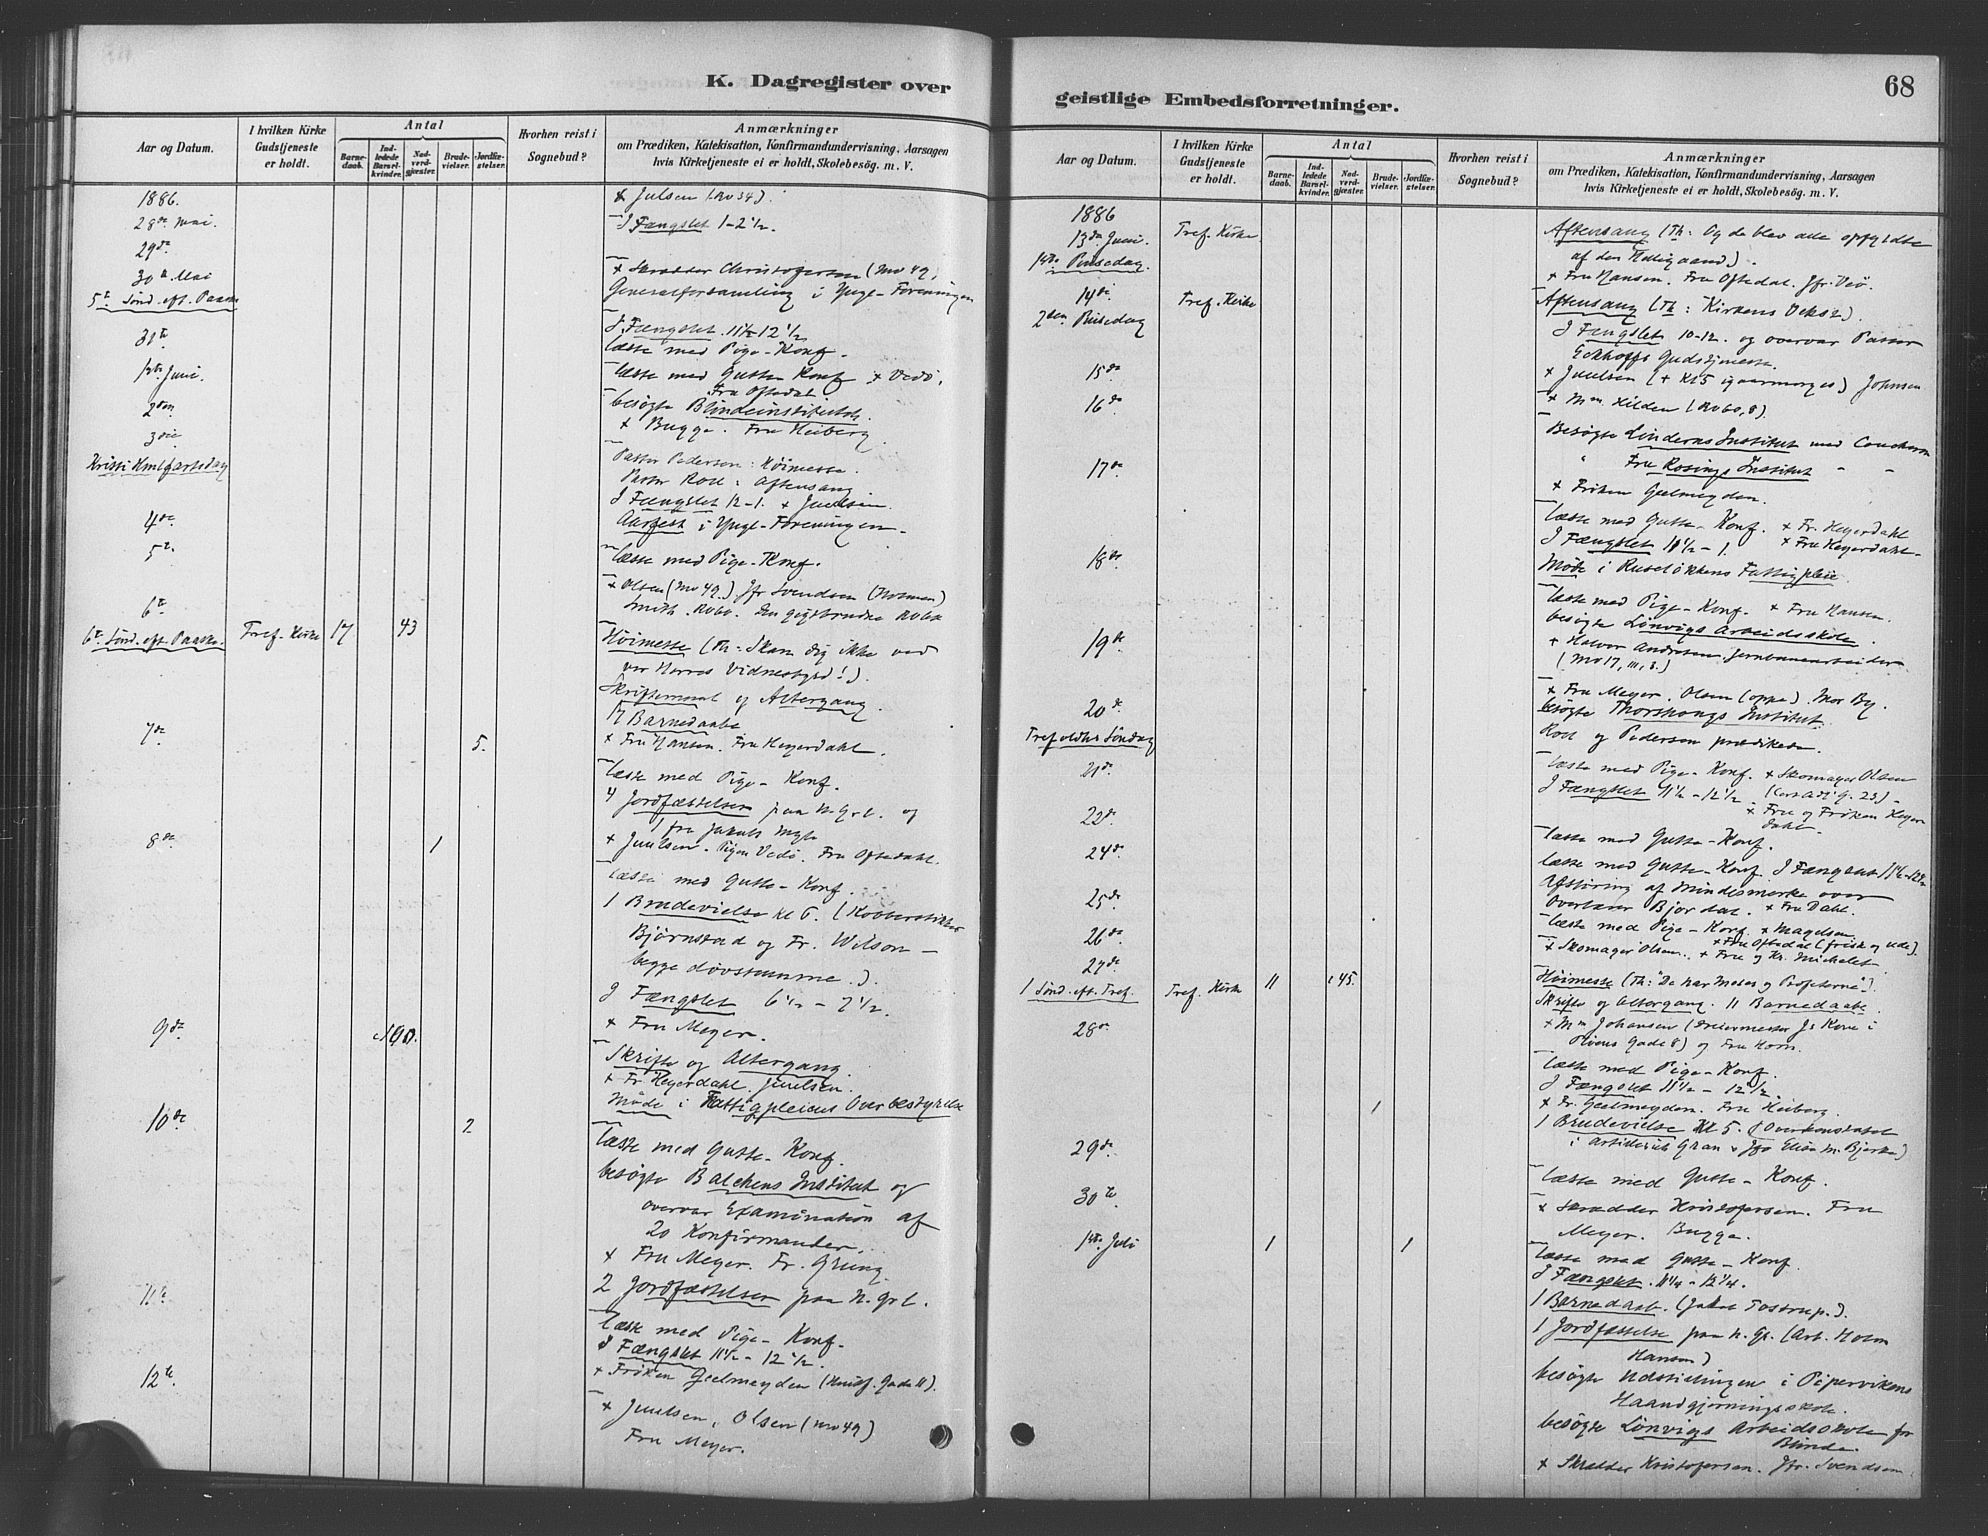 K. Dagregister over
Aar og Datum.
I hvilken Kirke Gudstjeneste er holdt.
Antal
Barnedaab.
Indledede Barselkvinder.
Nadverdgjæster.
Brudevielser.
Jordfæstelser.
Hvorhen reist i Sognebud?
Anmærkninger
om Prædiken, Katekisation, Konfirmandundervisning, Aarsagen
hvis Kirketjeneste ei er holdt, Skolebesög. m. V.
1886.
+ Julsen (Rv 34).
28de Mai.
I Fængslet 1-2 1/2.
29de
30te Mai
+ Skrædder Christofersen (Mv 49,
5te Sønd. eft. Paaske
Generalforsamling i Yngl-Foreningen
31te
I Fængslet 11 1/2-12 1/2
læste med Pige-Konf.
1ste Juni.
læste med Gutte Konf + Vedø,
Fru Oftedal
2den
besøgte Blindeinstitutet.
+ Bugge. Fru Heiberg
3die
Kristi Himlfartsdag
Pastor Pedersen: Høimesse.
Pastor Roll: Aftensang
I Fængslet 12-1. + Juulsen.
4de
Aarfest i Yngl-Foreningen.
5te
læste med Pige-Konf.
+ Olsen (Mv 49.) Jfr Svendsen (Holmen)
6te
Smith. Rv60.
6te Sønd. eft. Paaske. Tref. Kirke 17 43
Høimesse (Th: Skam dig ikke ved
vor Herres Vidnesbyrd!).
Skriftemaal og Altergang.
17 Barnedaabe
7de 5.
+ Fru Hansen. Fru Heyerdahl.
læste med Pige-Konf.
4 Jordfæstelser paa N. Grl. og
1 fra Jakobs
8de 1
+ Juulsen. Pigen Vedø. Fru Oftedahl.
læste med Gutte-Konf.
1 Brudevielse kl 6. (Kobberstikker
Bjørnstad og Fr. Wilson-
begge døvstumme.).
I Fængslet 6 1/2 - 7 1/2.
9de
+ Fru Meyer.
Skrifte og Altergang.
+ Fr. Heyerdahl. Juulsen.
Møde i Fattigpleiens Overbestyrelse
10de 2
læste med Gutte-Konf.
besøgte Balchens Institut og
overvar Examination af
20 Konfirmander.
+ Fru Meyer. Fr. Grung
2 Jordfæstelser paa N. Grl.
11te
læste med Pige-Konf.
I Fængslet 11 1/2 - 12 1/2.
+ Frøken Geelmeyden (Huitf. Gade 11).
12te.
+ Juulsen, Olsen (Mv 49)
Fru Meyer.
geistlige Embedsforretninger.
68
Aar og Datum.
I hvilken Kirke Gudstjeneste er holdt.
Antal
Barnedaab.
Indledede Barselkvinder.
Nadverdgjæster.
Brudevielser.
Jordfæstelser.
Hvorhen reist i Sognebud?
Anmærkninger
om Prædiken, Katekisation, Konfirmandundervisning, Aarsagen
hvis Kirketjeneste ei er holdt, Skolebesög. m. V.
1886
13de Juni. Tref. Kirke.
Aftensang (Th: Og de blev alle opfyldte
1ste Pinsedag.
af den Helligaand).
+ Fru Hansen. Fru Oftedal. Jfr. Veø.
14de Tref. Kirke
2den Pinsedag
Aftensang (Th: Kirkens Vekst).
I Fængslet 10-12. og overvar Pastor
Eckhoffs Gudstjeneste.
15de
+ Juulsen (+ Kl 5 igaarmorges) Johnsen
16de
+ Mm. Hilden (Rv60,8).
Besøgte Linderns Institut med Coucheron
17de
" Fru Rosings Institut " "
+ Frøken Geelmeyden.
læste med Gutte-Konf. + Fr. Heyerdahl
18de
I Fængslet 11 1/2 - 1. + Fru Heyerdahl.
Møde i Ruseløkkens Fattigpleie
læste med Pige-Konf. + Fru Hansen.
19de
besøgte Lønvigs Arbeidsskole.
+ Halvor Andresen Jernbanearbeider
(Mv 17, III, 8.)
20de
+ Fru Meyer. Olsen (oppe). Mor By.
besøgte Thorshaugs Institut.
Trefoldhs Søndag
Roll og Pedersen prædikede.
21de.
læste med Pige-Konf. + Skomager Olsen
I Fængslet 11 1/2 - 12 1/2
+ Fru og Frøken Heyer
dahl.
22de.
læste med Gutte-Konf.
24de.
læste med Gutte-Konf I Fængslet 11 1/2-12 1/2
Afsløring af Mindesmerke over
25de
Overlærer Bjørdal. + Fru Dahl.
læste med Pige-Konf. + Magelsen
26de
+ Fru Oftedal (frisk og ude).
+ Skomager Olsen. + Fru og Hr. Michelet.
27de.
1 Sønd. eft. Tref. Tref. Kirke 11 c 45.
Høimesse (Th: "De har Moses og Profeterne").
Skrifte og Altergang. 11 Barnedaabe.
28de
+ Mm Johansen (Dreiermester Js Kone i
Gade 8) og Fru Horn.
læste med Pige-Konf.
I Fængslet 11 1/2 - 12 1/2.
+ Fr. Geelmeyden. Fru Heiberg.
1
1 Brudevielse Kl 5. (Overkonstabel
29de.
i Artilleriet Gran & Jfr Elise M. Bjerke)
læste med Gutte-Konf.
30te
+ Skrædder Kristofersen. Fru
Meyer. Bugge.
1ste Juli 1 1
læste med Gutte-Konf
I Fængslet. 11 1/4 - 12 1/4.
1 Barnedaab. (Jakob Tostrup.).
1 Jordfæstelse paa N. Gr. (Arb. Holm
Hansen)
besøgte Udstillingen i Pipervikens
Haandgjerningsskole.
besøgte Lønvigs Arbeidsskole for
Blinde.
+ Skrædder Kristofersen. Jfr. Svendsen.